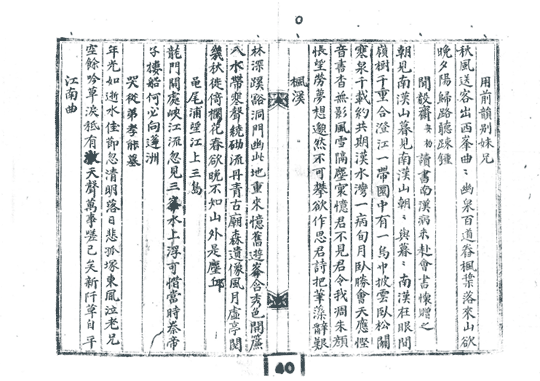 用前韻別妹兄
秋風送客出西峯曲〻幽泉百道舂楓葉落來山欲
晚夕陽歸路聽踈鍾
聞毅齋讀書南漢病未赴會書懷贈之
朝見南漢山暮見南漢山朝〻與暮〻南漢在眼間
嶺樹千重合澄江一帶園中有一烏巾披雲臥松關
寒泉千載約共期漢水灣一病旬月臥勝會天應慳
音書杳無影風雪隔塵寰憶君不見君令我凋朱顔
悵望勞夢想邈然不可攀欲作思君詩把筆藻辭艱
楓溪
林深蹊路洞門幽此地重來憶舊遊峯合秀色開簾
入水帶寒聲繞砌流丹青古廟森遺像風月虛亭閱
幾秋徙倚欄花春欲晚不知山外是塵邱
黽尾浦望江上三島
龍門開處峽江流忽見三峯水上浮可惜當時秦帝
子樓船何必向瀛洲
哭從弟孝能墓
年光如逝水佳節忽清明落日悲孤塚東風泣老兄
空餘吟草淚抵有天聲萬事嗟已矣新阡草自平
江南曲
40